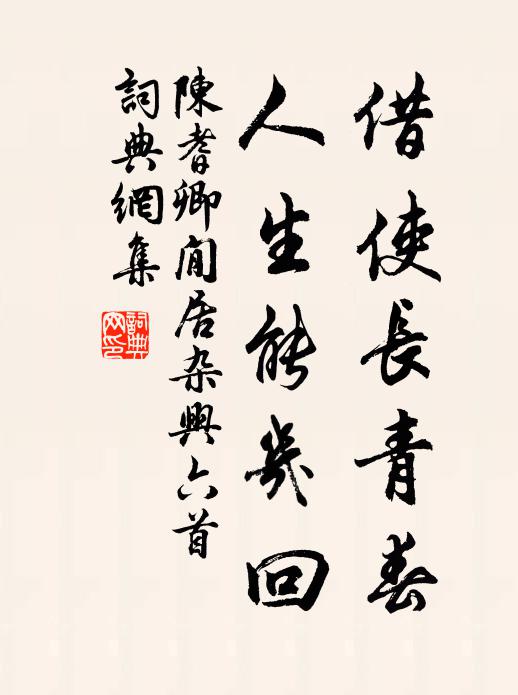 借使長青春
人生能幾回
陳耆卿閒居杂興六首
詞典網集
詞典網印